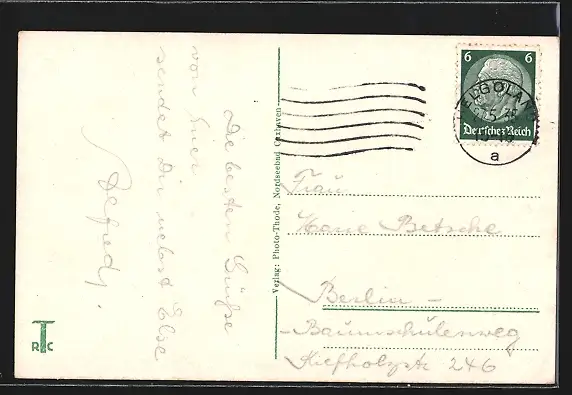 Die besten Grüße
von hier
sendet Dir nebst Else
Verlag: Photo-Thode, Nordseebad Cuxhaven
6 6
Deutsches Reich
HELGOLAND
a
Frau
Marie Betsche
Berlin -
- Baumschulenweg
Kiefholzstr 246
T
R C